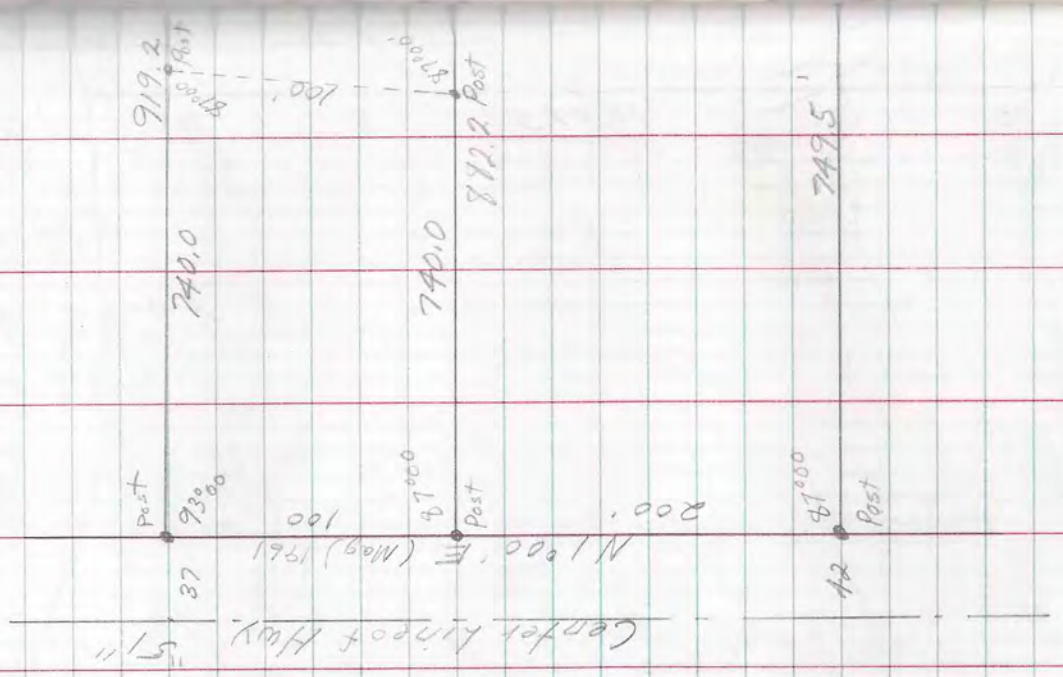 919.2
Post
87°00'
100'
87°00'
Post
740.0
740.0
749.5'
Post
93°00
100
87°00
Post
200'
87°00
Post
N 1°00' E (Mag) 1961
37
42
Center Line of Hwy